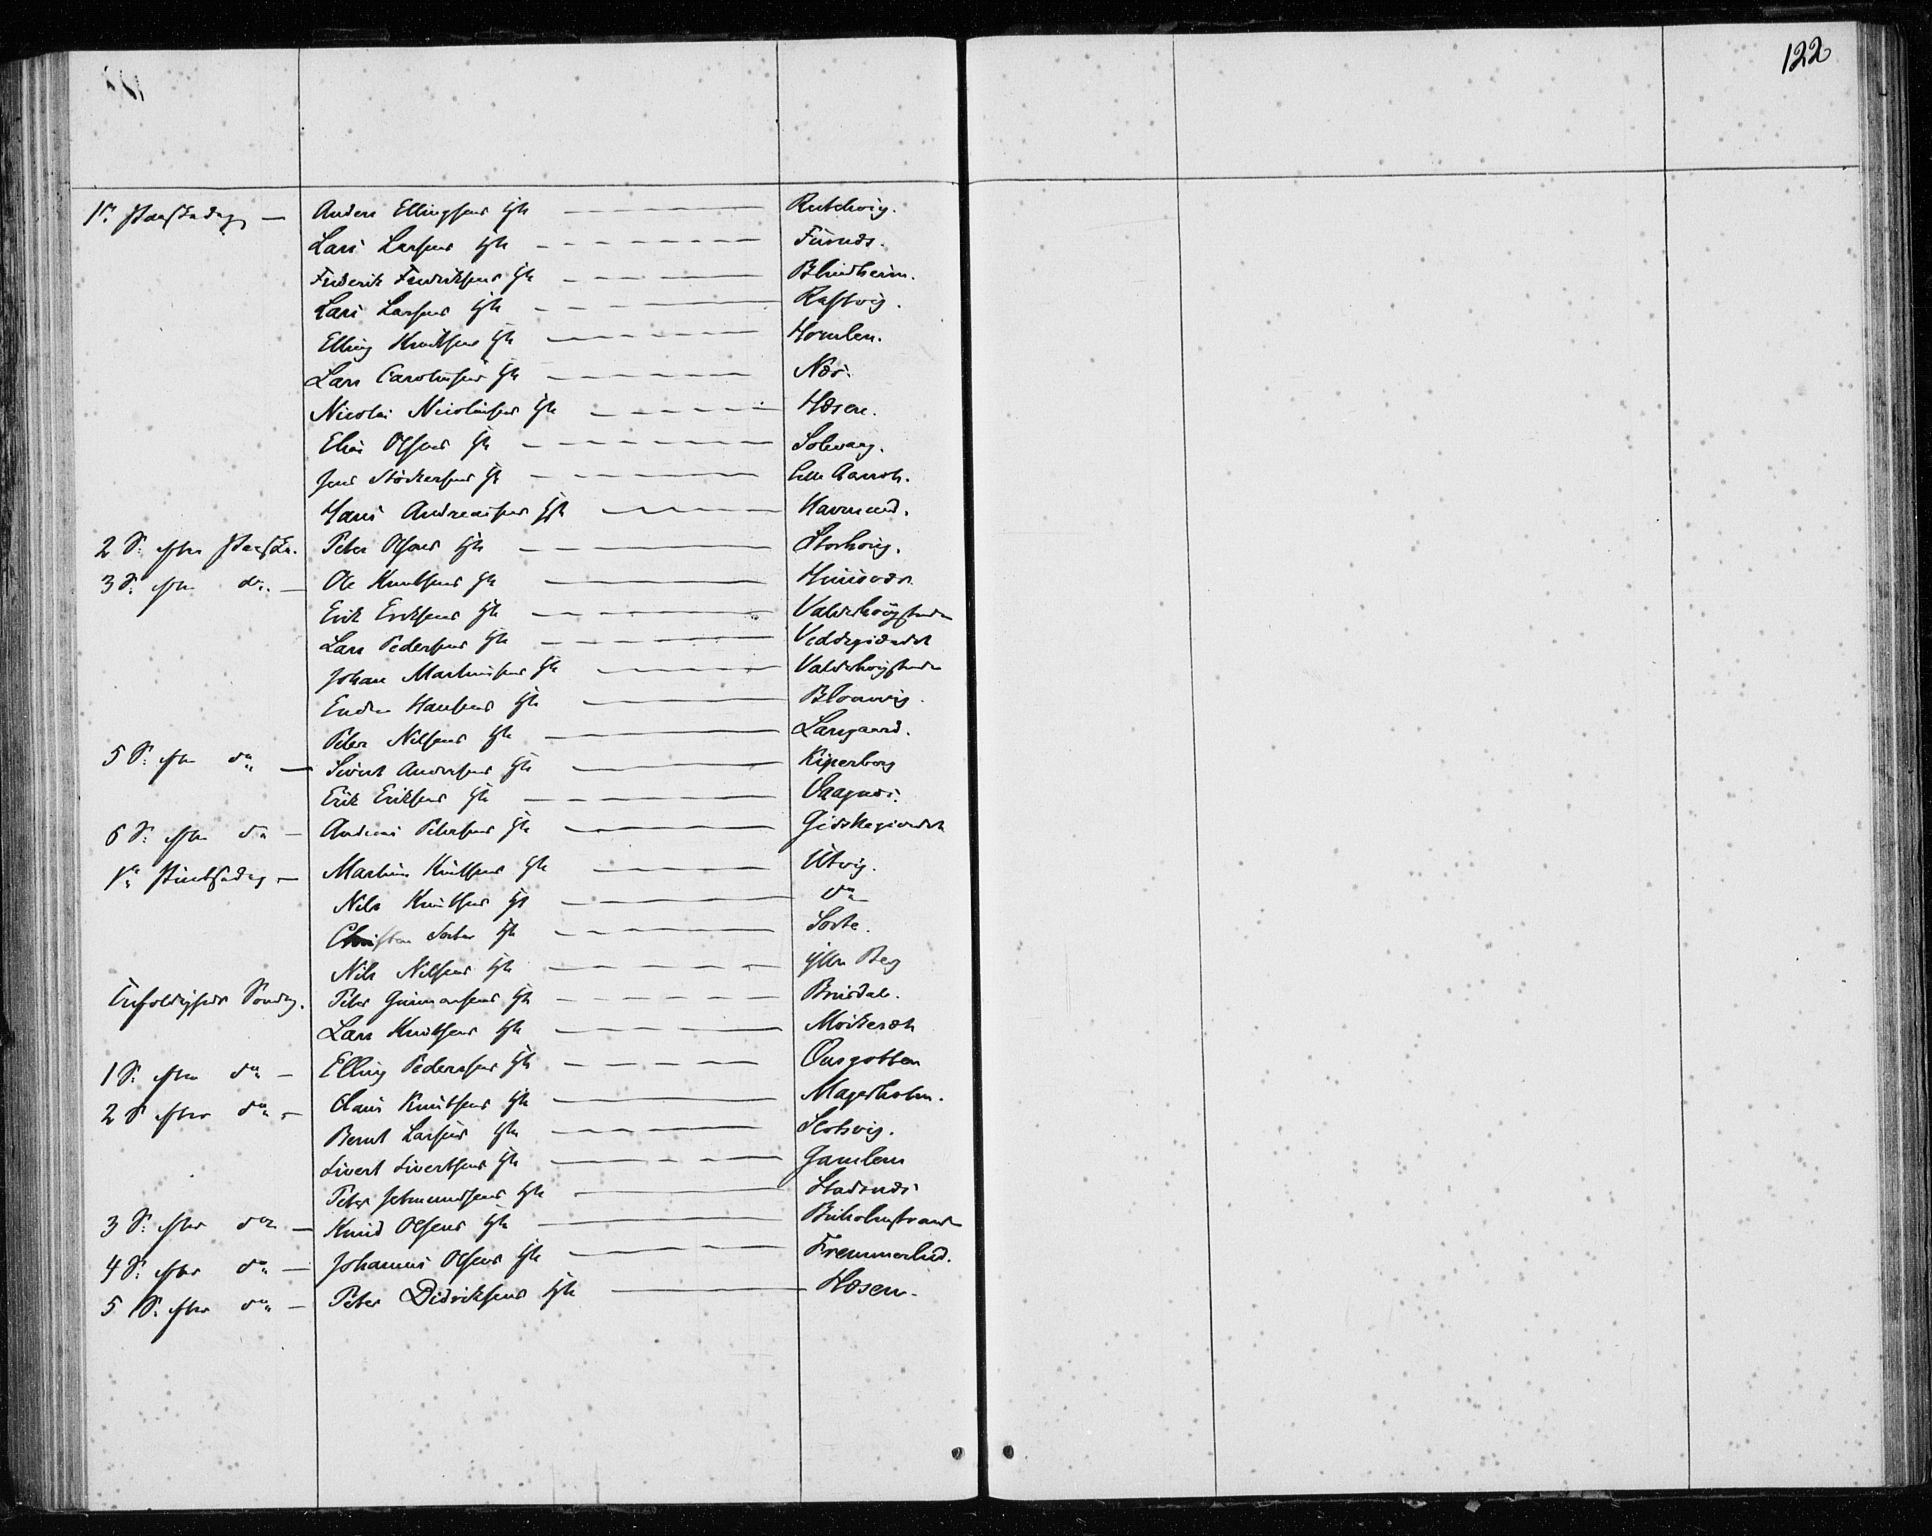 122
1ste Paaskedag — Anders Ellingsens Hst — Ratchvig.
Lars Larsens Hst — Furnæs.
Frederik Fredriksens Hst — Blindheim.
Lars Larsens Hst — Raftvig.
Elling Knutsens Hst — Homlen.
Lars Carolusens Hst — Nær.
Nicolai Nicolaisens Hst — Hæsen.
Elias Olsens Hst — Solevaag.
Jens Hst — Lille
Hans Andreasens Hst — Havnund.
2 S. efter Paaske. Peter Olsens Hst — Storhoug.
3 S. efter do. — Ole Knutsens Hst —
Erik Eriksens Hst — Valderhougstrand
Lars Pedersens Hst — Veddergjærdet
Johan Martinusens Hst — Valderhougstrand
Endre Hansens Hst — Blomvig.
Peter Nilsens Hst — Larsgaard.
5 S. efter do — Sivert Andersens Hst — Kiperberg
Erik Eriksens Hst — Vaagnæs.
6 S. efter do — Andreas Petersens Hst — Gidskegjærdet
1ste Pintsedag — Martinus Knutsens Hst — Utvig.
Nils Knutsens Hst — do
Christen Sorte Hst — Sorte.
Nils Nilsens Hst — Ytre Berg
Trefoldigheds Søndag. Peter Gunnarsens Hst — Brusdal.
Lars Knutsens Hst —
1 S. efter do — Elling Pedersens Hst —
2 S efter do — Claus Knutsens Hst — Magerholm.
Bernt Larsens Hst — Slotsvig.
Sivert Sivertsens Hst — Gamlem
Peter Jetmundsens Hst — Stadsnæs
3 S. efter do — Knud Olsens Hst — Buholmstrand
4 S. efter do — Johannes Olsens Hst — Fremmerlid.
5 S. efter do — Peter Didriksens Hst — Hæsen.